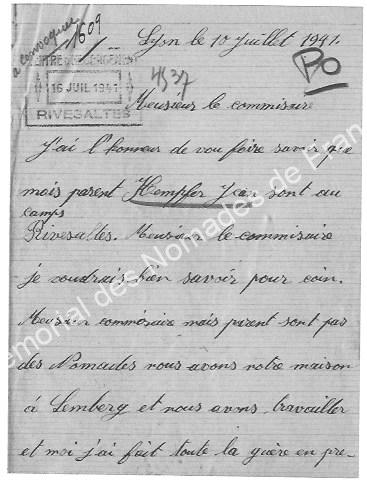 à convoquer
1609
Lyon le 10 Juillet 1941.
CENTRE D'HÉBERGEMENT
16 JUIL 1941
RIVESALTES
4537
PO
Meusieur le commisaire
J'ai l'honneur de vou foire savoir que
mais parent Hempfer Jean sont au
camps
Rivesaltes. Meusieur le commisaire
je voudrais bien savoir pour coin.
Meusieur commisaire mais parent sont pas
des Nomades nous avons notre maison
à Lemberg et nous avons travailler
et moi j'ai fait toute la guère en pre-
Mémorial des Nomades de France